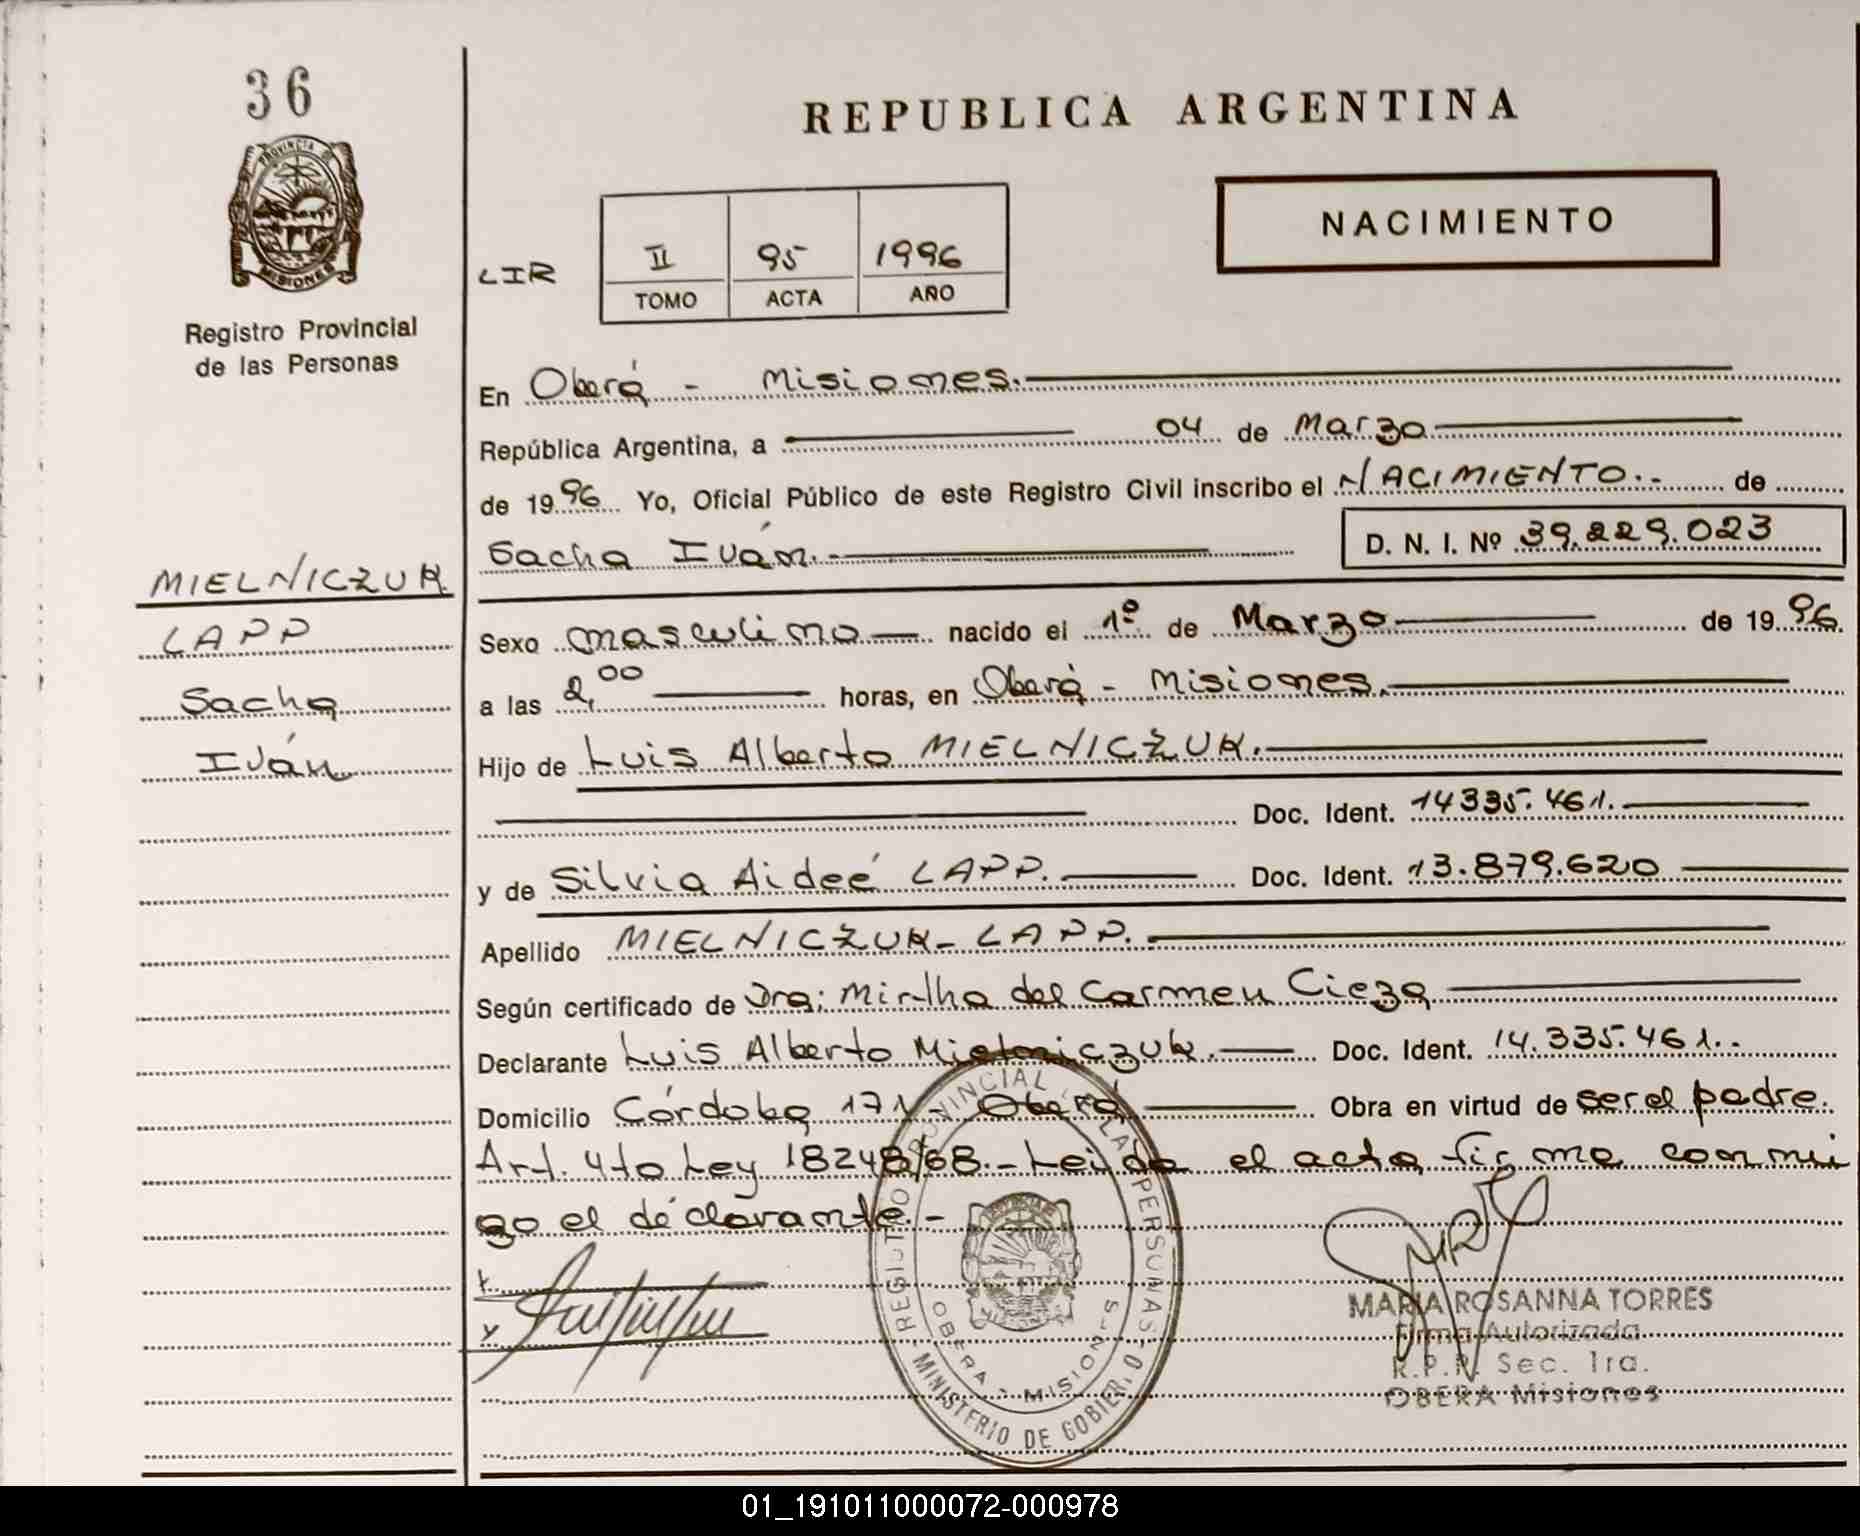 36
PROVINCIA DE
MISIONES
Registro Provincial
de las Personas
MIELNICZUK
LAPP
Sacha
Iván
REPUBLICA ARGENTINA
NACIMIENTO
LIR
II 95 1996
TOMO ACTA AÑO
En Oberá - Misiones.
República Argentina, a 04 de Marzo
de 1996 Yo, Oficial Público de este Registro Civil inscribo el NACIMIENTO.- de
Sacha Iván.- D. N. I. Nº 39.229.023
Sexo masculino nacido el 1º de Marzo de 1996.
a las 2,00 horas, en Oberá - Misiones.
Hijo de Luis Alberto MIELNICZUK.
Doc. Ident. 14335.461.
y de Silvia Aideé LAPP. Doc. Ident. 13.879.620
Apellido MIELNICZUK- LAPP.
Según certificado de Dra; Mirtha del Carmen Cieza
Declarante Luis Alberto Mielniczuk. Doc. Ident. 14.335.461..
Domicilio Córdoba 171 - Oberá Obra en virtud de ser el padre.
Art. 4to Ley 18248/68.- Leída el acta firma conmi
go el declarante.-
REGISTRO PROVINCIAL DE LAS PERSONAS
OBERA - MISIONES
MINISTERIO DE GOBIERNO
MARIA ROSANNA TORRES
Firma Autorizada
R.P.P. Sec. 1ra.
OBERA Misiones
01_191011000072-000978